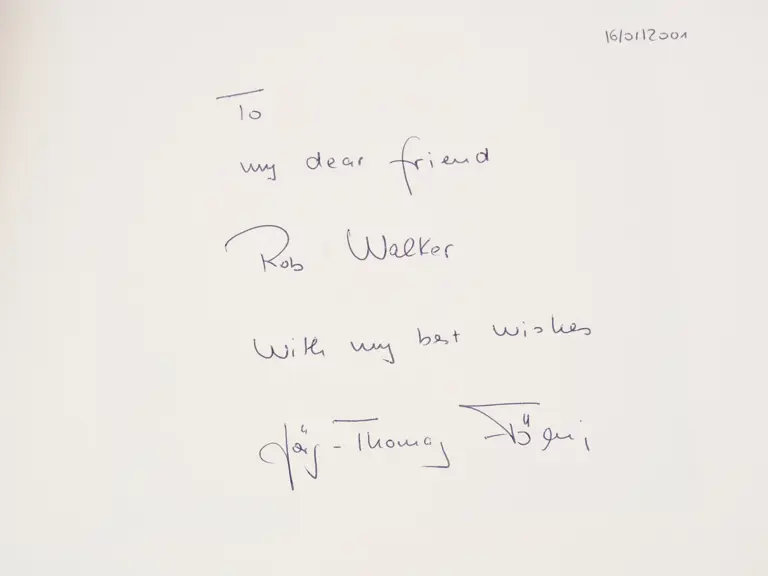 16/01/2001
To
my dear friend
Rob Walker
With my best wishes
Jörg-Thomas Födisch